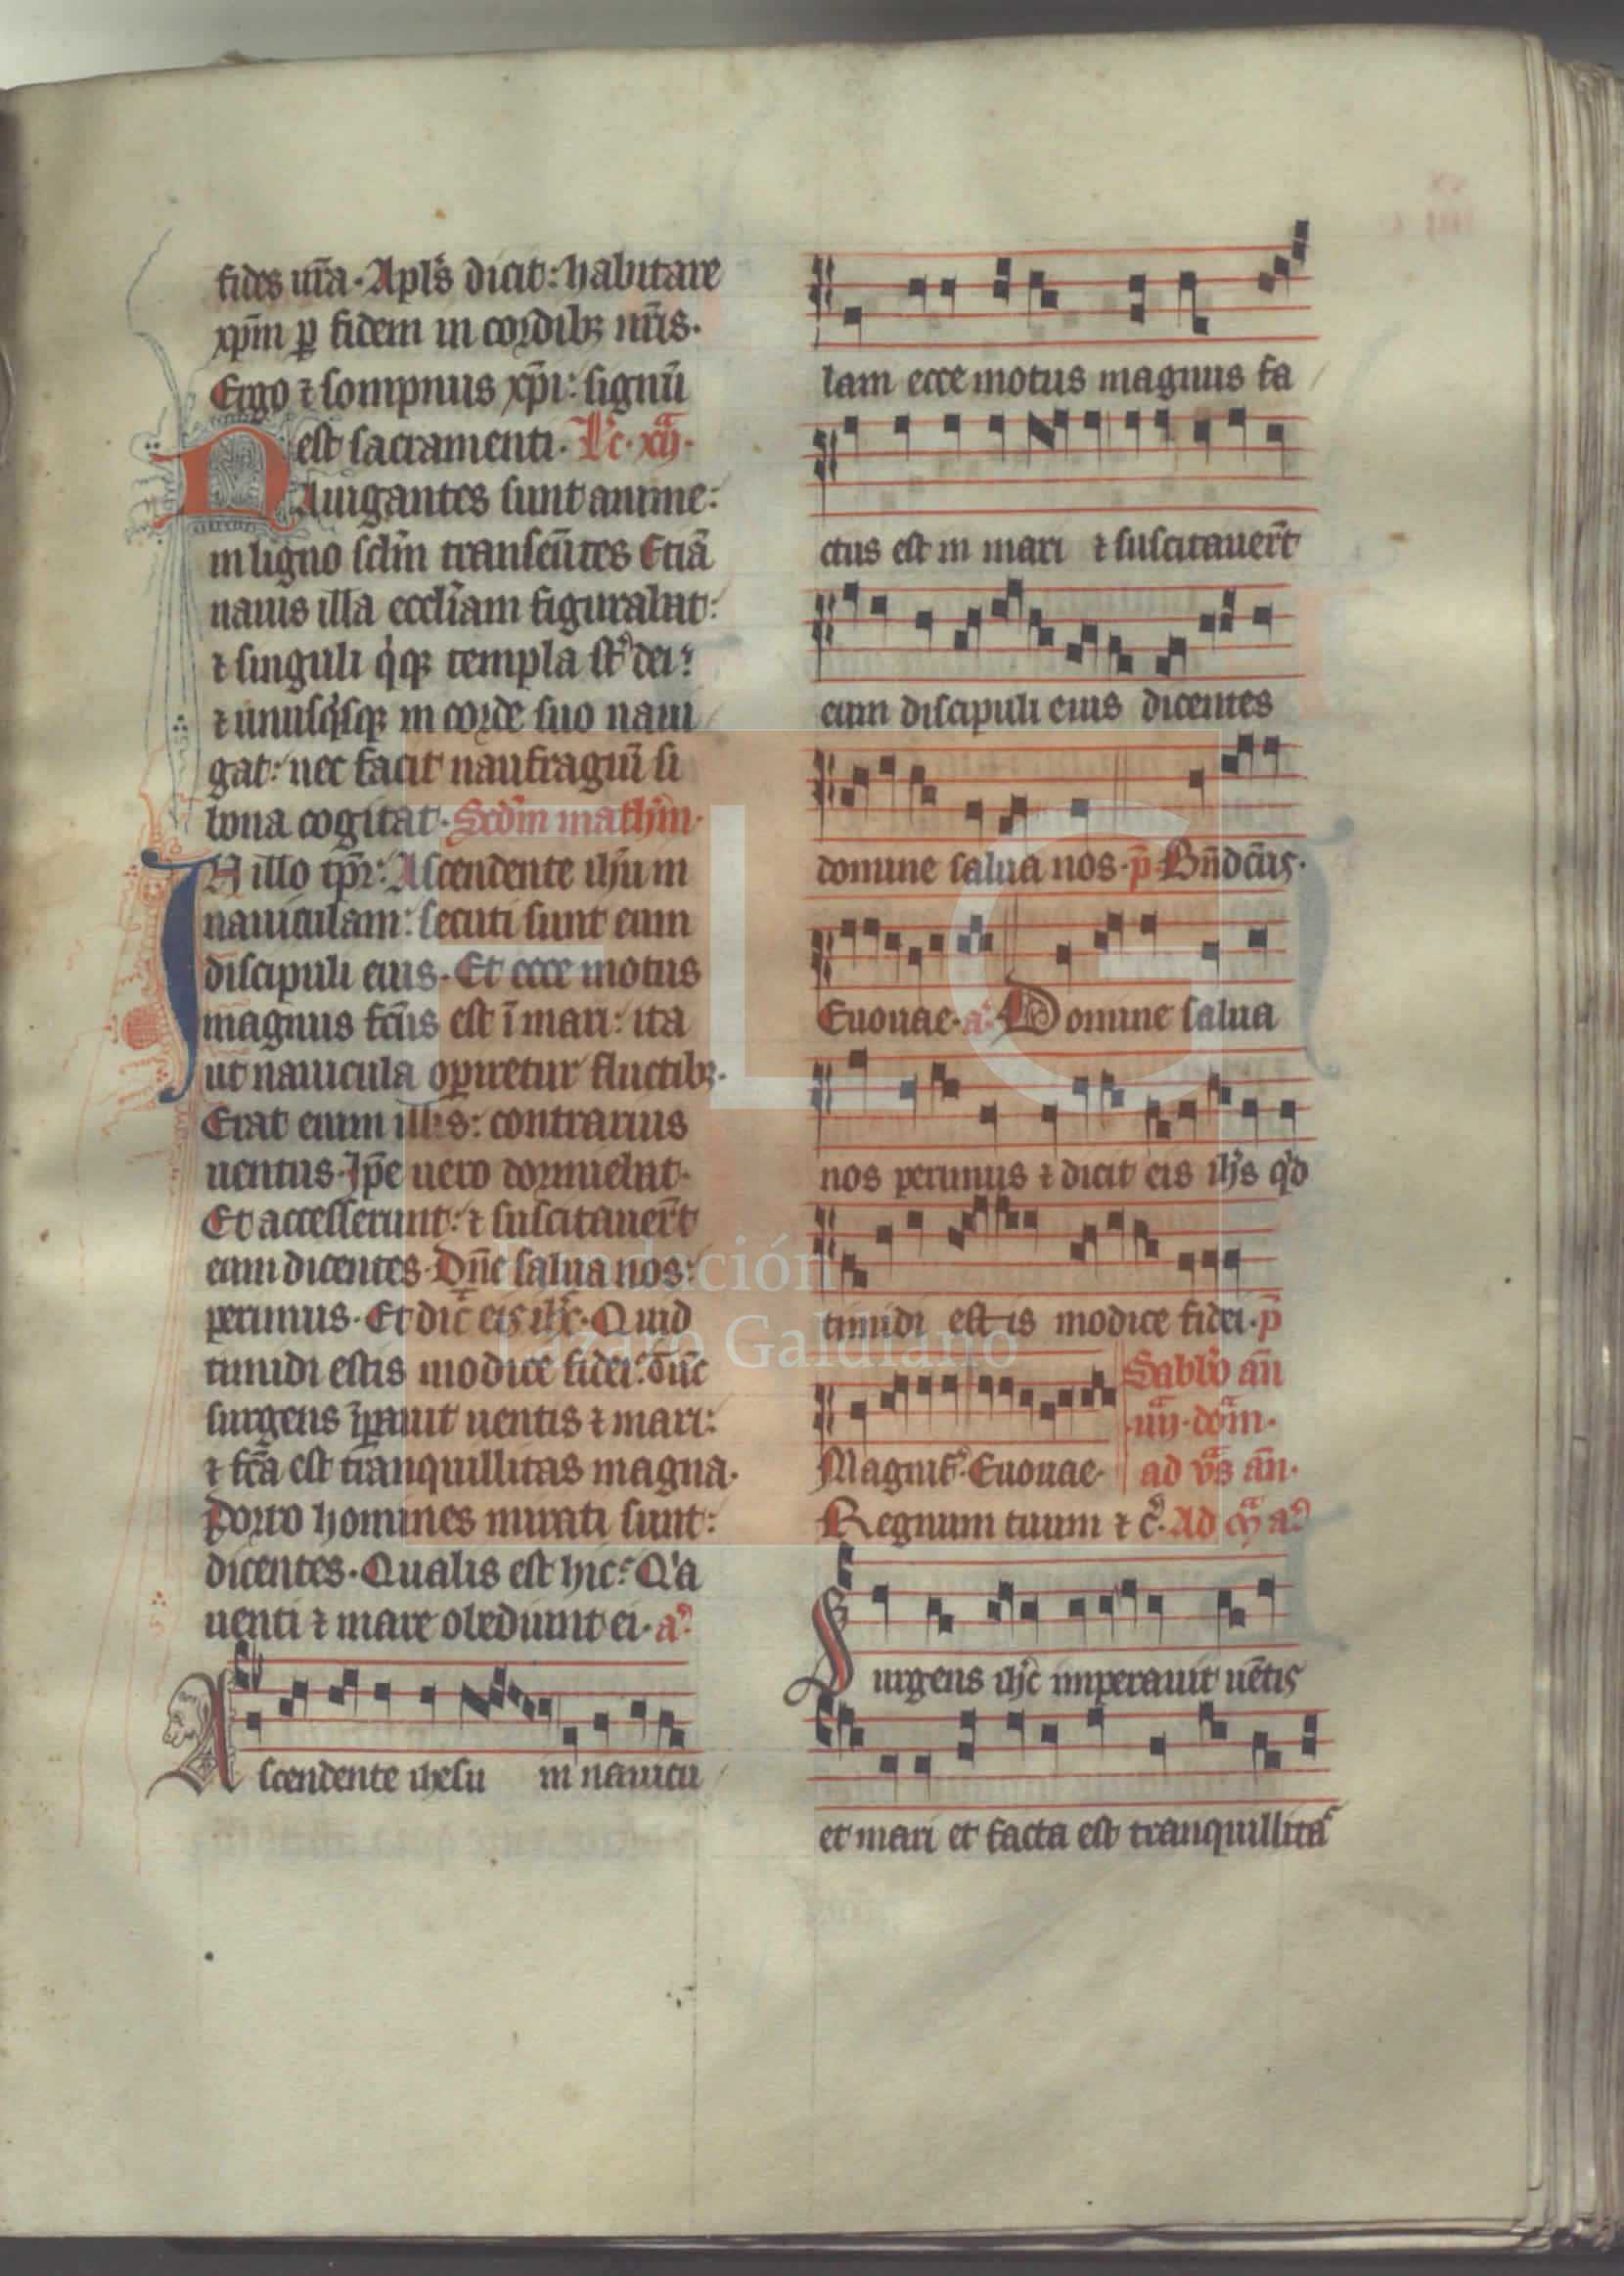 fides ur̄a. Apl's dicit: habitare
xp̄m ꝑ fidem in cordibꝫ nr̄is.
Ergo ⁊ sompnus xp̄i: signū
est sacramenti. Lc̄. xij.
Nauigantes sunt anime:
in ligno sclm̄ transeūtes Etiā
nauis illa eccl'iam figurabat:
⁊ singuli q'qꝫ templa st' dei:
⁊ unusq'sqꝫ in corde suo naui
gat: nec facit naufragiū si
bona cogitat. Scdm̄ math'm.
In illo tp̄r: Ascendente ih'u in
nauiculam: secuti sunt eum
discipuli eius. Et ecce motus
magnus fc̄us est ī mari: ita
ut nauicula oꝑiretur fluctibꝫ.
Erat enim illis: contrarius
uentus. Ip̄e uero dormiebat.
Et accesserunt: ⁊ suscitauer̄t
eum dicentes. Dn̄e salua nos:
perimus. Et dic̄ eis ih'c. Quid
timidi estis modice fidei: Tūc
surgens īꝑauit uentis ⁊ mari:
⁊ fc̄a est tranquillitas magna.
Porro homines mirati sunt:
dicentes. Qualis est hic: Q'a
uenti ⁊ mare obediunt ei. a'
Ascendente ihesu in nauicu
lam ecce motus magnus fa
ctus est in mari ⁊ suscitauer̄t
eum discipuli eius dicentes
domine salua nos. p̄ Bn̄dc̄us.
Euouae. a'. Domine salua
nos perimus ⁊ dicit eis ih's q'd
timidi estis modice fidei. p̄
Magnif'. Euouae.
Sabb'o an̄
iiij. dom̄.
ad vs̄ an̄.
Regnum tuum ⁊ c'. Ad m̄ a'
Surgens ih'c imperauit uētis
et mari et facta est tranquillitas
Fundación
Lázaro Galdiano
FLG